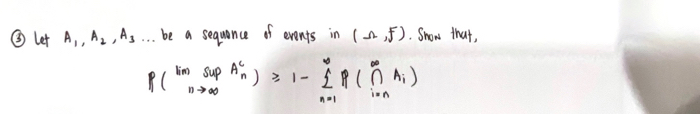 ③ Let A₁, A₂, A₃ ... be a sequence of events in (Ω, F). Show that,
P( lim sup_{n→∞} Aₙᶜ ) ≥ 1 - Σ_{n=1}^{∞} P( ⋂_{i=n}^{∞} Aᵢ )